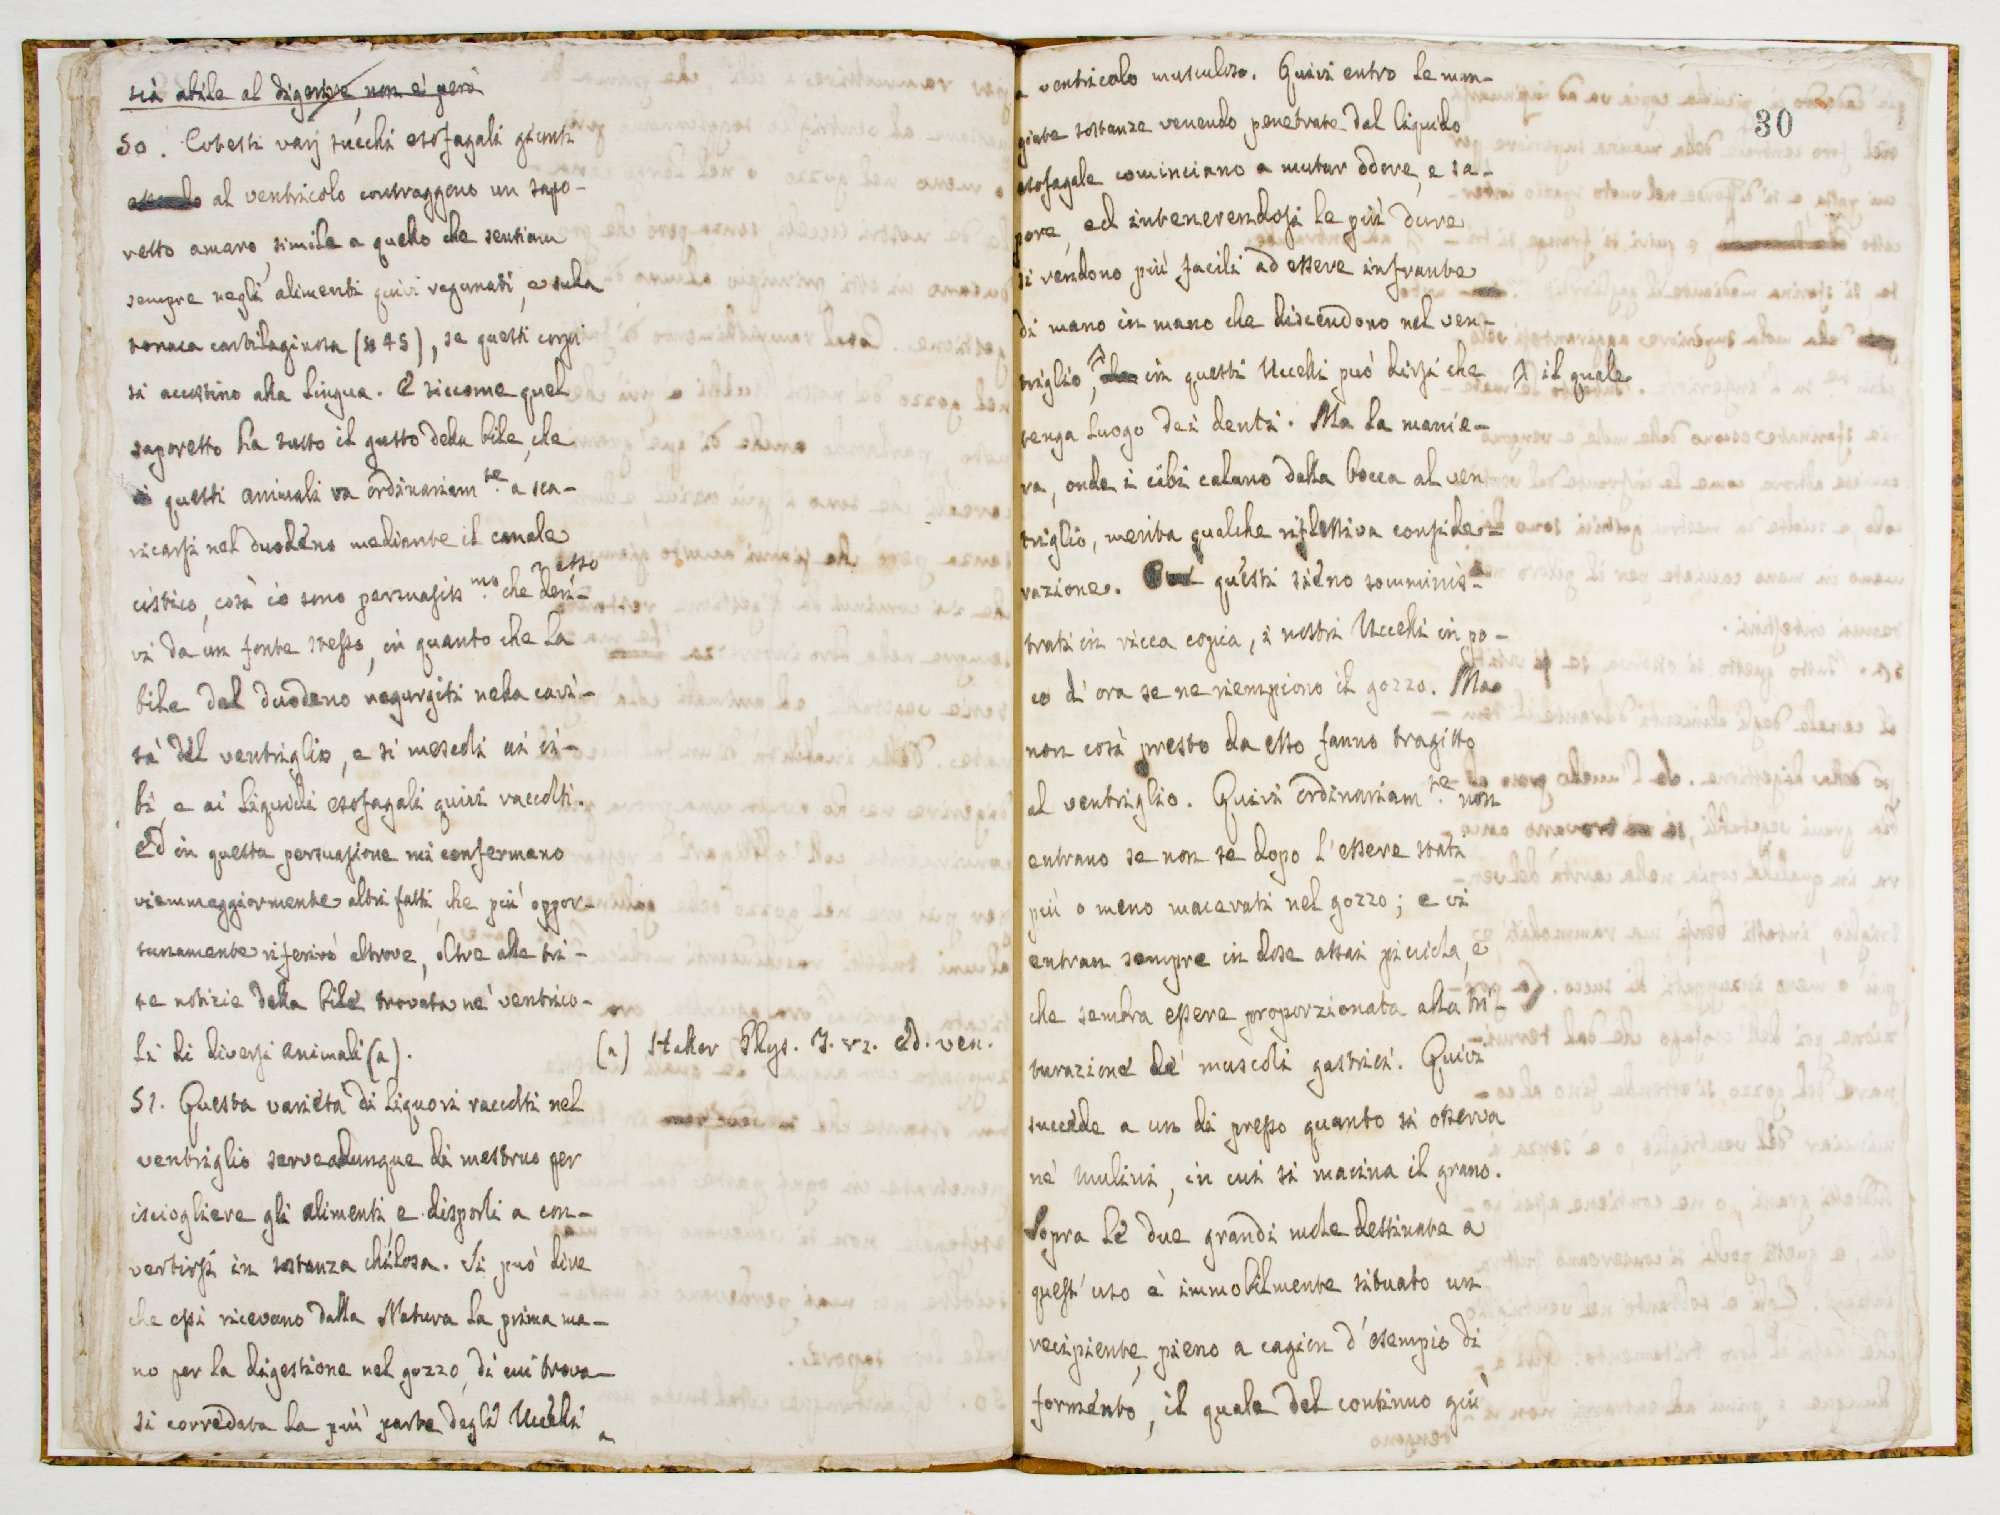 sia abile al digerire, non è però
50. Cotesti varj succhi esofagali giunti
al ventricolo contraggono un sapo-
retto amaro, simile a quello che sentiam
sempre negli alimenti quivi ragunati, e sulla
tonaca cartilaginosa (§ 45), se questi corpi
si accostino alla lingua. E siccome quel
saporetto ha tutto il gusto della bile, che
in questi animali va ordinariam.te a sca-
ricarsi nel duodeno mediante il canale
cistico, così io sono persuasiss.mo che esso deri-
vi da un fonte stesso, in quanto che la
bile dal duodeno regurgiti nella cavi-
tà del ventriglio, e si mescoli ai ci-
bi, e ai liquidi esofagali quivi raccolti.
Ed in questa persuasione mi confermano
viemmaggiormente altri fatti, che più oppor-
tunamente riferirò altrove, oltre alle tri-
te notizie della bile trovata ne' ventrico-
li di diversi animali (a).
(a) Haller Phys. T. VI. Ed. ven.
51. Questa varietà di liquori raccolti nel
ventriglio serve adunque di mestruo per
isciogliere gli alimenti e disporli a con-
vertirsi in sostanza chilosa. Si può dire
che essi ricevano dalla Natura la prima ma-
no per la digestione nel gozzo, di cui trova-
si corredata la più parte degli Uccelli
a
30
a ventricolo musculoso. Quivi entro le man-
giate sostanze venendo penetrate dal liquido
esofagale cominciano a mutar odore, e sa-
pore, ed intenerendosi le più dure
si rendono più facili ad essere infrante
di mano in mano che discendono nel ven-
triglio, che in questi Uccelli può dirsi che
il quale
tenga luogo dei denti. Ma la manie-
ra, onde i cibi calano dalla bocca al ven-
triglio, merita qualche riflessiva conside-
razione. questi sieno somminis-
trati in ricca copia, i nostri Uccelli in po-
co d'ora se ne riempiono il gozzo. Ma
non così presto da esso fanno tragitto
al ventriglio. Quivi ordinariam.te non
entrano se non se dopo l'essere stati
più o meno macerati nel gozzo; e vi
entran sempre in dose assai picciola, e
che sembra essere proporzionata alla tri-
turazione de' muscoli gastrici. Quivi
succede a un di presso quanto si osserva
ne' mulini, in cui si macina il grano.
Sopra le due grandi mole destinate a
quest'uso è immobilmente situato un
recipiente, pieno a cagion d'esempio di
formento, il quale del continuo giù